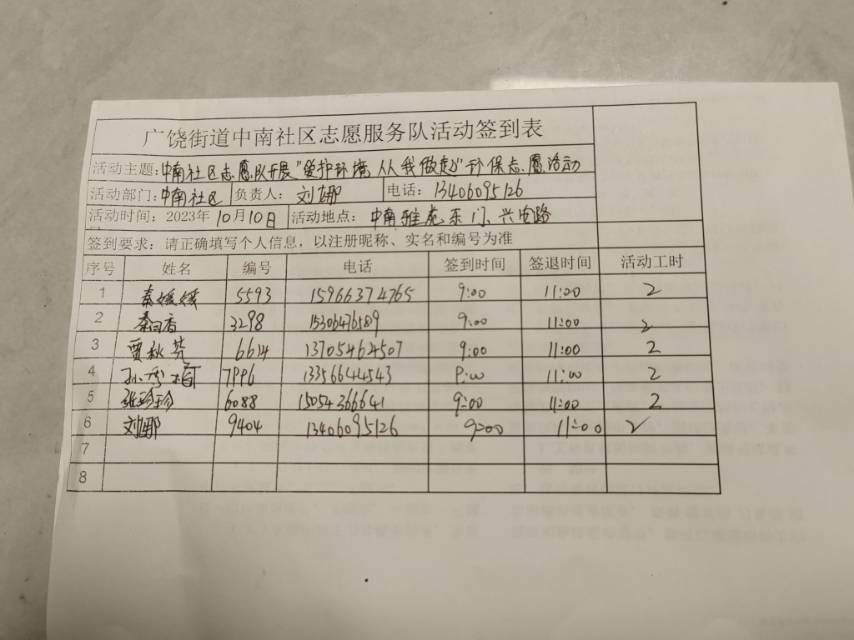 广饶街道中南社区志愿服务队活动签到表
活动主题：中南社区志愿队开展"爱护环境 从我做起"环保志愿活动
活动部门：中南社区 负责人：刘娜 电话：13406095126
活动时间：2023年10月10日 活动地点：中南雅苑东门、兴安路
签到要求：请正确填写个人信息，以注册昵称、实名和编号为准
序号 姓名 编号 电话 签到时间 签退时间 活动工时
1 秦媛媛 5593 15966374765 9:00 11:00 2
2 3298 15306476589 9:00 11:00 2
3 贾秋芳 6614 13705464507 9:00 11:00 2
4 13356644543 11:00 2
5 张珍珍 6088 15054366641 9:00 11:00 2
6 刘娜 9404 13406095126 9:00 11:00 2
7
8